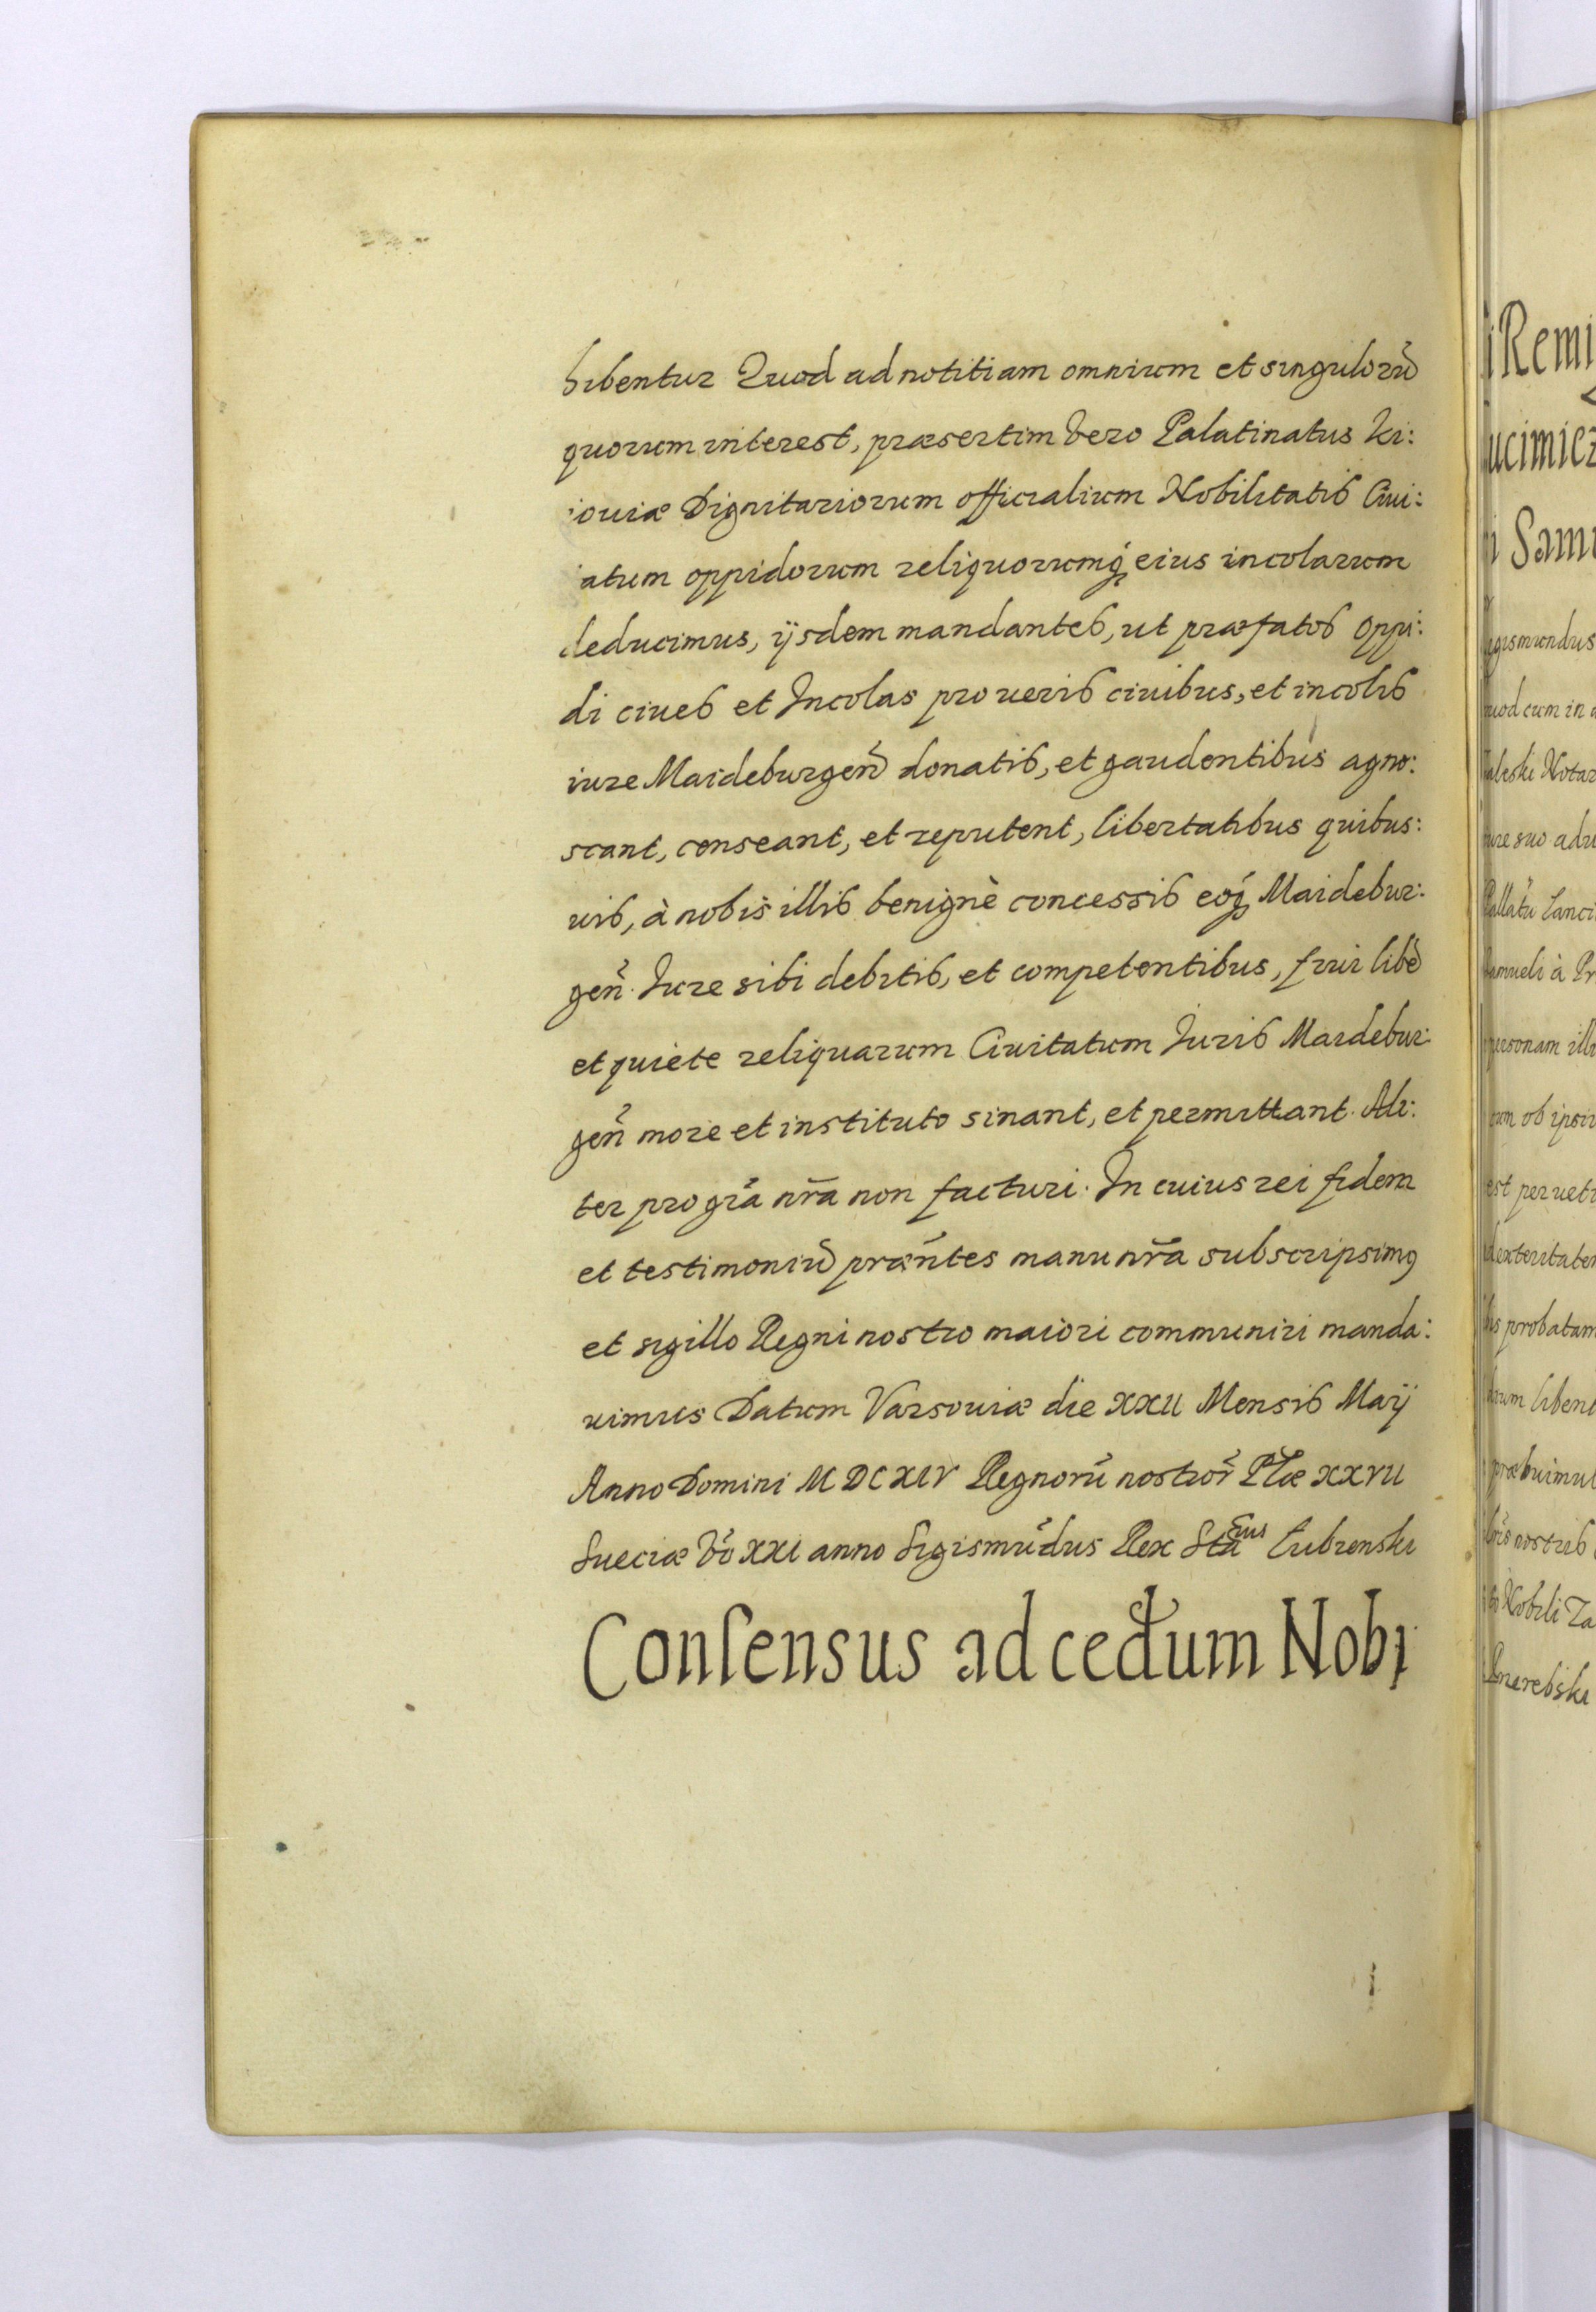 bibentur Quod ad notitiam omnium et singulorũ
quorum interest, præsertim vero Palatinatus Ki:
iouiæ Dignitariorum officialium Nobilitatis Ciui:
tatum oppidorum reliquorumq́ꝫ eius incolarum
deducimus, ijsdem mandantes, ut præfatos oppi:
di ciues et Incolas pro ueris ciuibus, et incolis
iure Maideburgeñ donatis, et gaudentibus agno:
scant, censeant, et reputent, libertatibus quibus:
uis, à nobis illis benignè concessis eoq́ꝫ Maidebur:
geñ. Iure sibi debitis, et competentibus, frui liberè
et quiete reliquarum Ciuitatum Iuris Maidebur:
geñ more et instituto sinant, et permittant. Ali:
ter pro gr̃a nr̃a non facturi. In cuius rei fidem
et testimoniũ præñtes manu nr̃a subscripsimꝰ
et sigillo Regni nostro maiori communiri manda:
uimus Datum Varsouiæ die XXII Mensis Maij
Anno Domini MDCXIV Regnorũ nostror̃ Pl̃æ XXVII
Sueciæ võ XXI anno Sigismũdus Rex Stãus Lubienski
Consensus ad cedum Nobi
i Remi
ucimicz
i Samu
igismundus
uod cum in
aleski Notar
iure suo
Pallatũ Lanci
Samueli à Pr
personam illi
ob ipsi
est per uet
dexteritatem
probatam
libent
præbuimus
nostris
Nobili Za